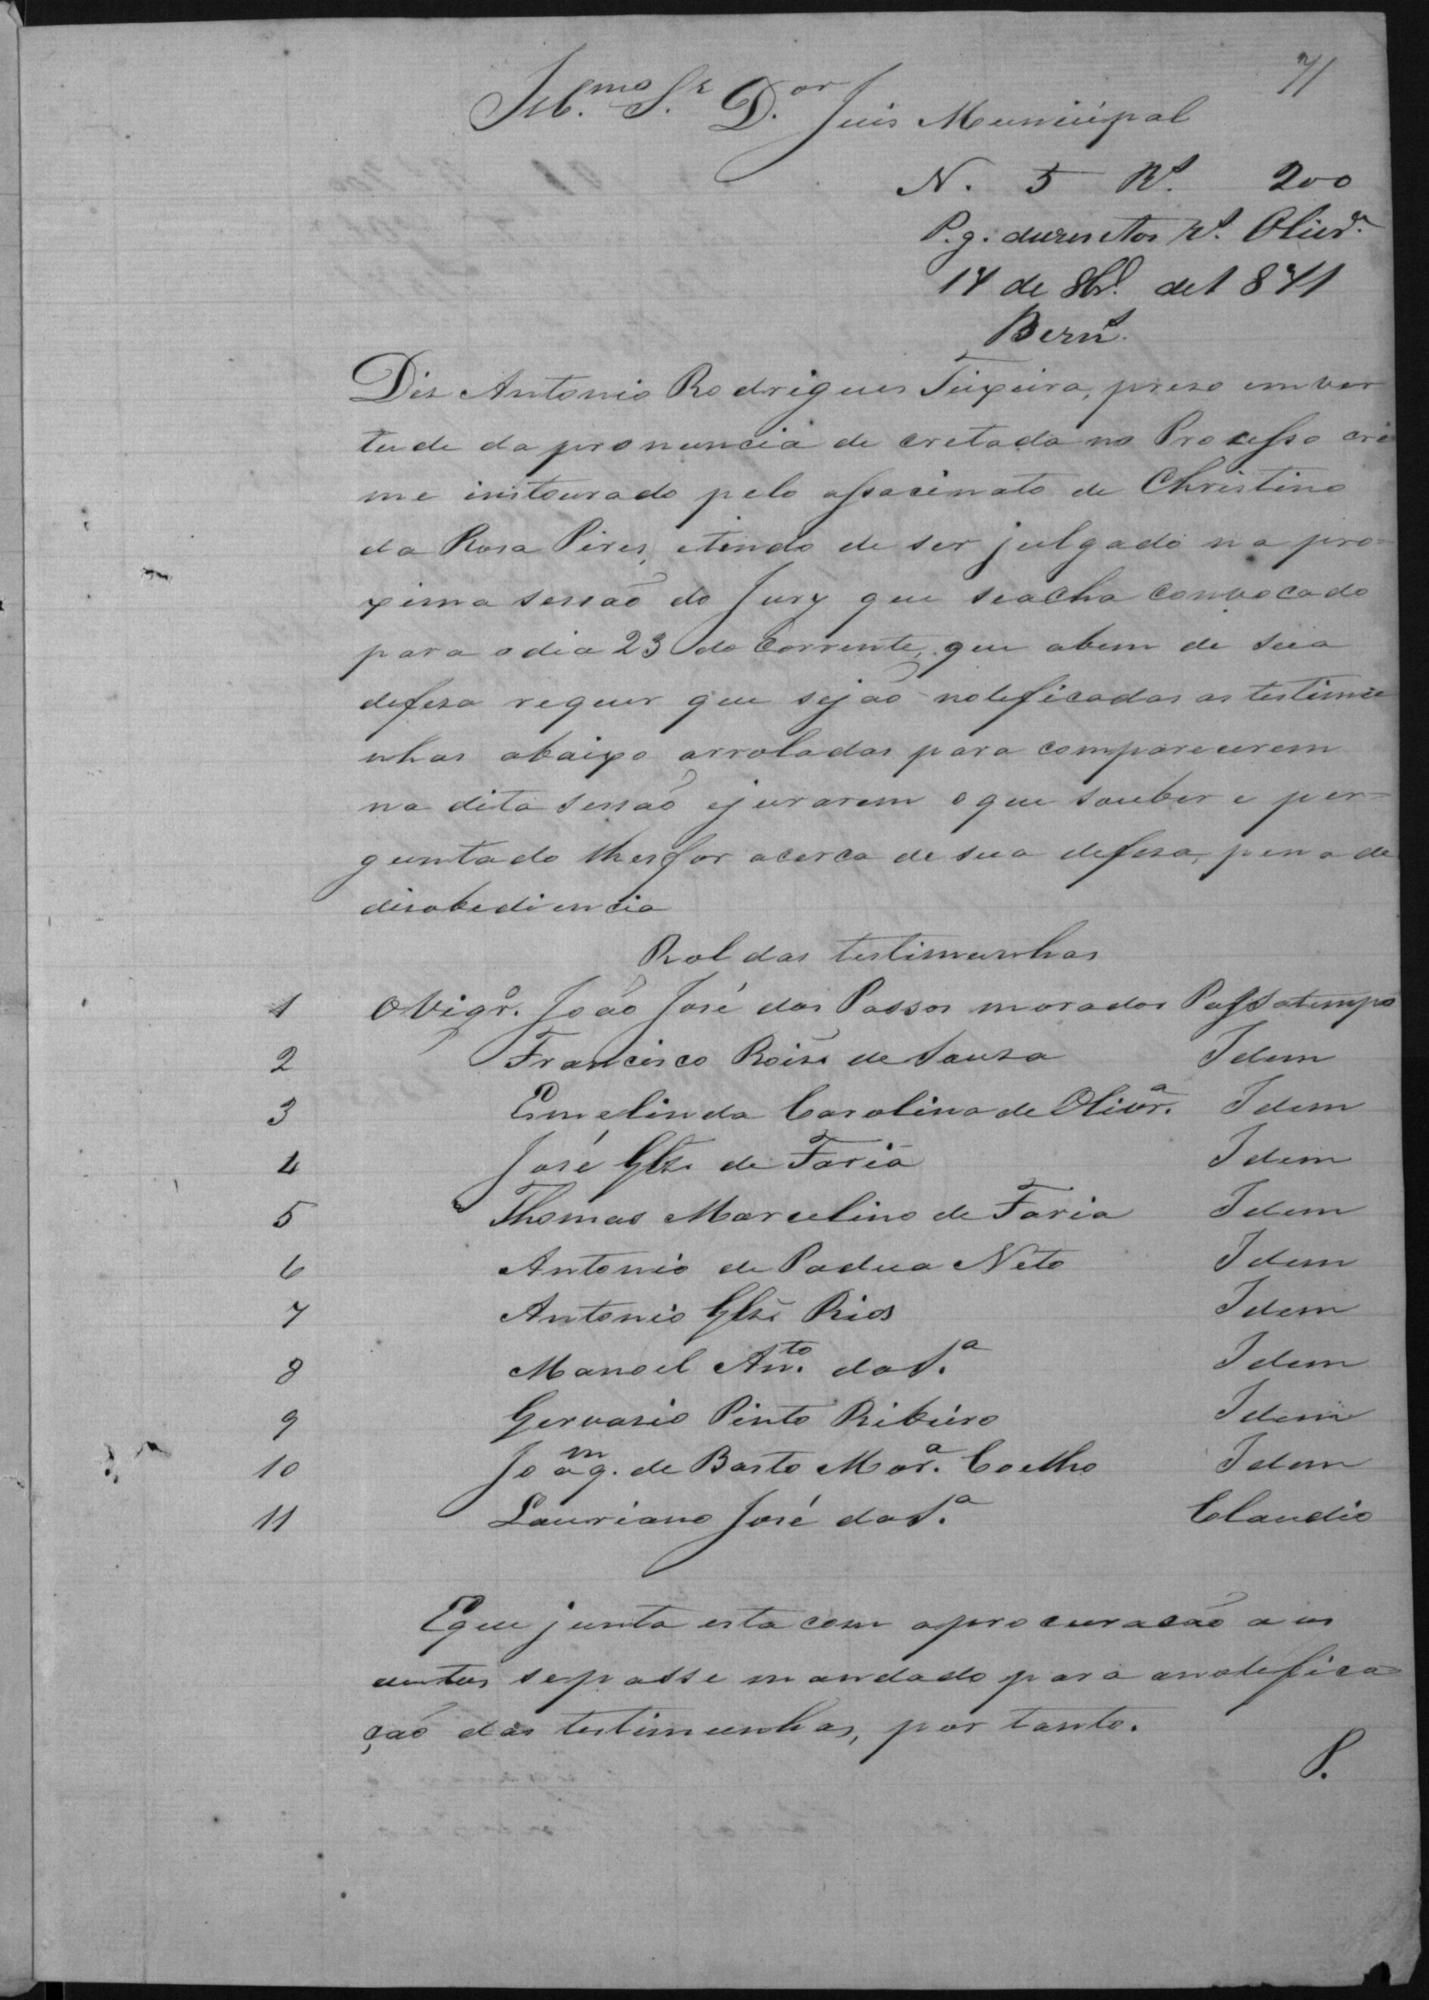 71
Ill.mo Sr. D.or Juis Municipal
N. 5 Rs. 200
P. g. duzentos rs. Olivr.a
14 de 8br.o de 1871
Bern.s
Diz Antonio Rodrigues Teixeira, prezo em ver
tude da pronuncia de cretada no Processo cri
me instourado pelo assacinato de Christino
da Rosa Pires, etendo de ser julgado na pro-
xima sessão do Jury que seacha convocado
para odia 23 do Corrente, que abem de sua
defeza requer que sejão noteficadas as testimu
nhas abaixo arroladas para comparecerem
na dita sessão ejurarem oque souber e per-
guntado lhes for acerca de sua defeza, pena de
disobediencia
Rol das testimunhas
1 O Vigr.o João José dos Passos morador Passatempo
2 Francisco Roiz de Souza Idem
3 Emelinda Carolina de Olivr.a Idem
4 José Glz. de Faria Idem
5 Thomas Marcelino de Faria Idem
6 Antonio de Padua Neto Idem
7 Antonio Glz. Rios Idem
8 Manoel An.to da S.a Idem
9 Gervasio Pinto Ribeiro Idem
10 Joaq.m de Basto Mor.a Coelho Idem
11 Lauriano José da S.a Claudio
Eque junta esta com aprocuracão aos
autos sepasse mandado para anotefica-
ção das testimunhas, por tanto.
P.